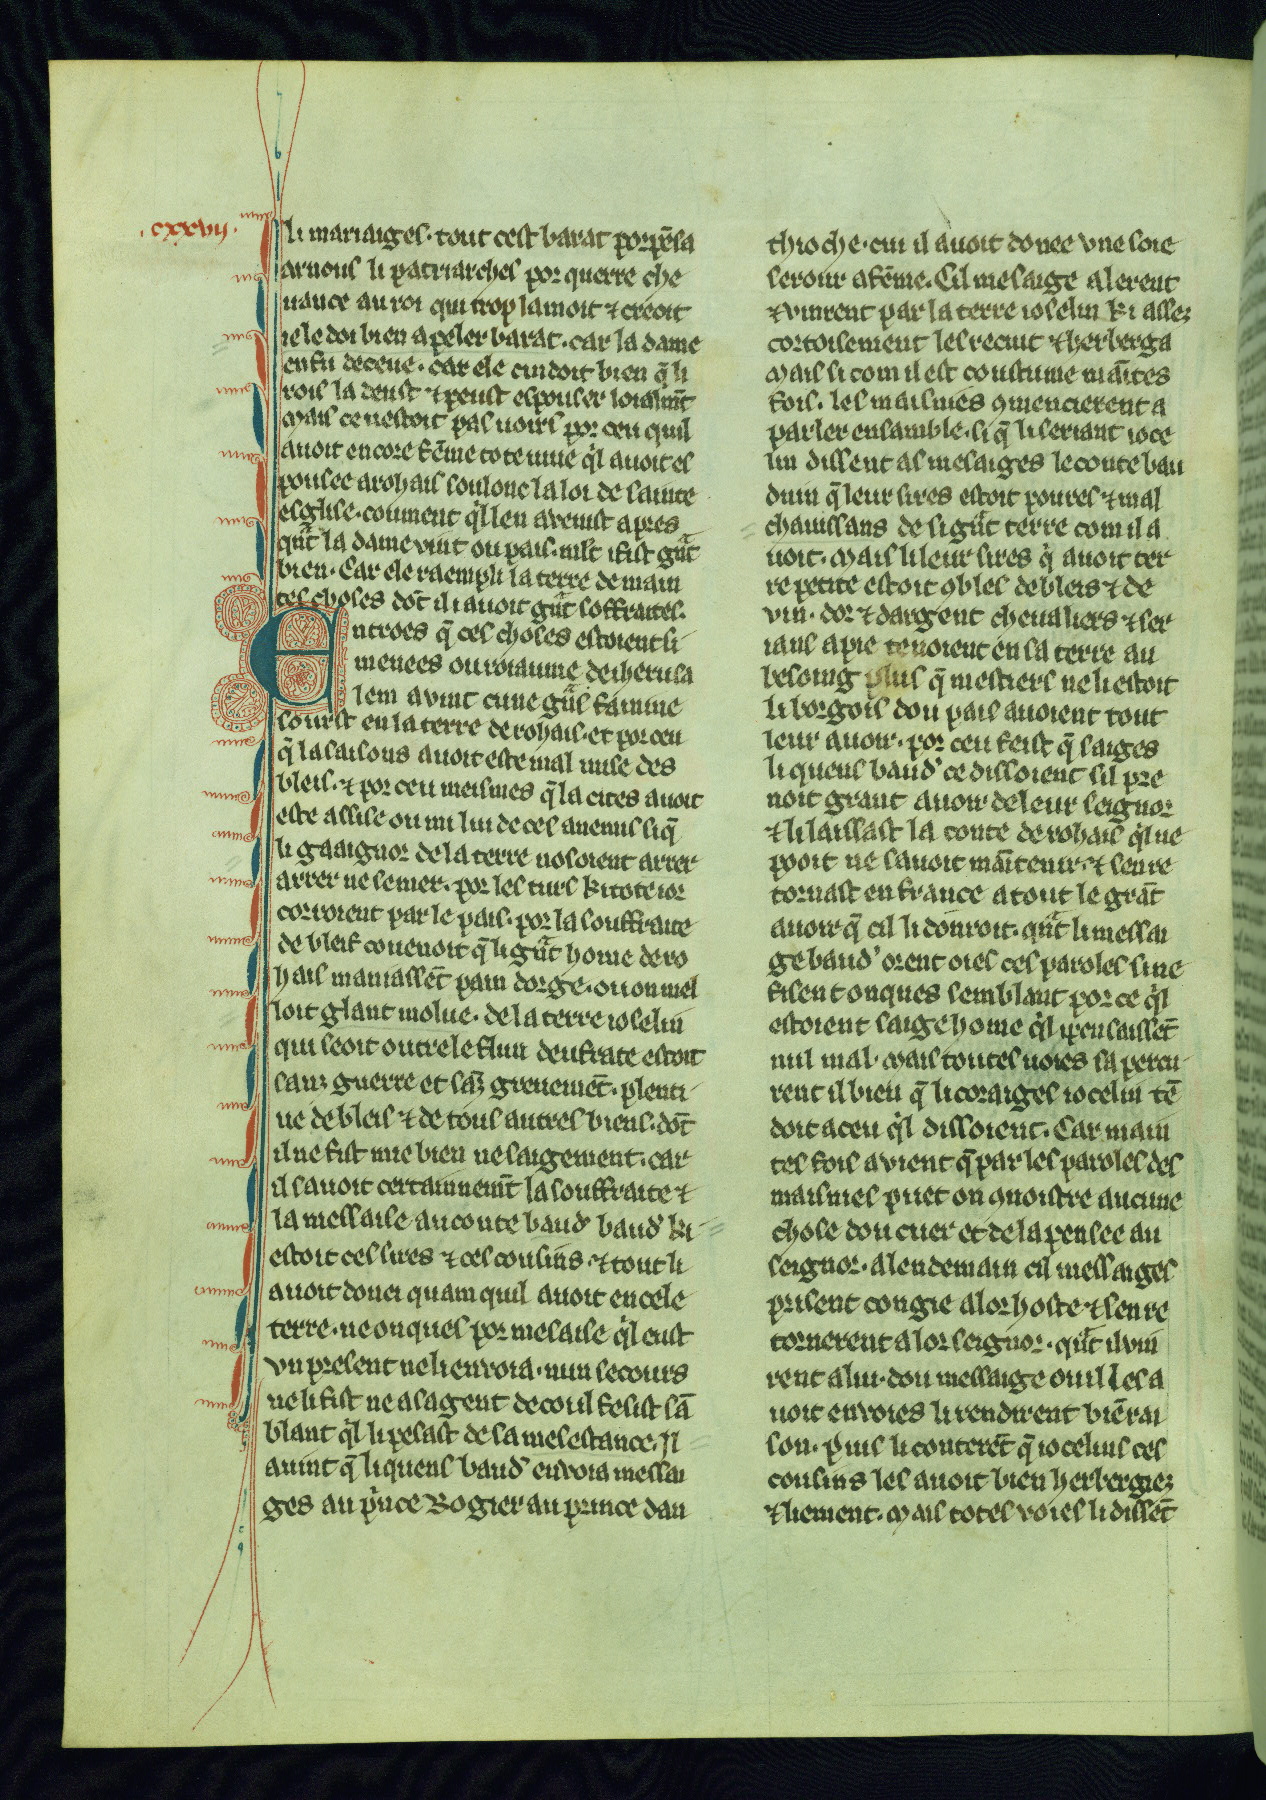 .cxxvij.
li mariaiges. tout cest barat porpẽsa
arnous li patriarches por querre che
uance au roi qui trop lamoit ⁊ creoit
ie le doi bien apeler barat. car la dame
en fu deceue. car ele cuidoit bien q̃ li
rois la deust ⁊ peust espouser loialmẽt
Mais ce nestoit pas uoirs por ceu quil
auoit encore fẽme tote uiue q̉l auoit es
pousee a rohais soulonc la loi de sainte
esglise. coument q̉l len auenist apres
qũt la dame uint ou pais. mlt i fist gũt
bien. Car ele raempli la terre de main
tes choses dõt il i auoit gũt soffraites.
Entroes q̃ ces choses estoient si
menees ou roiaume de iherusa
lem auint cune gũs famine
sourst en la terre de rohais. et por ceu
q̃ la saisons auoit este mal uuse des
bleis. ⁊ por ceu meismes q̃ la cites auoit
este assise ou mi lui de ces anemis si q̃
li gaaignor de la terre nosoient arrer
arrer ne semer. por les turs ki tote ior
corroient par le pais. por la souffraite
de bleif couenoit q̃ li gũt home de ro
hais maniassẽt pain dorge. ou on mel
loit glant molue. de la terre ioselin
qui seoit outre le flun deufrate estoit
sanz guerre et sãz greuemẽt. plenti
ue de bleis ⁊ de tous autres biens. dõt
il ne fist mie bien ne saigement. car
il sauoit certainnemẽt la souffraite ⁊
la messaise au conte baud' baud' ki
estoit ces sires ⁊ ces cousins. ⁊ tout li
auoit donei quam quil auoit en cele
terre. ne onques por mesaise q̉l eust
vn present ne li enuoia. nun secours
ne li fist ne a sa gent de coi il fesist sã
blant q̉l li pesast de sa mesestance. Il
auint q̃ li quens baud' enuoia messai
ges au p̉nce Rogier au prince dan
thioche. cui il auoit donee vne soie
serour a fẽme. Cil mesaige alerent
⁊ vinrent par la terre ioselin ki assez
cortoisement les reciut ⁊ herberga
Mais si com il est coustume maĩtes
fois. les maismies 9mencierent a
parler ensamble. si q̃ li seriant ioce
lin dissent as mesaiges le conte bau
duin q̃ leur sires estoit poures ⁊ mal
chauissans de si gũt terre com il a
uoit. Mais li leur sires q̉ auoit ter
re petite estoit 9bles de bleis ⁊ de
vin. dor ⁊ dargent cheualiers ⁊ ser
ians a pie tenoient en sa terre au
besoing plus q̃ mestiers ne li estoit
li borgois dou pais auoient tout
leur auoir. por ceu feist q̃ saiges
li quens baud' ce dissoient sil pre
noit grant auoir de leur seignor
⁊ li laissast la conte de rohais q̉l ne
pooit ne sauoit maĩtenir. ⁊ senre
tornast en france a tout le grãt
auoir q̃ cil li donroit. qũt li messai
ge baud' orent oies ces paroles si ne
fisent onques semblant por ce q̉l
estoient saige home q̉l i pensaissẽt
nul mal. Mais toutes uoies sa percu
rent il bien q̃ li coraiges iocelin tẽ
doit a ceu q̉l dissoient. Car main
tes fois auient q̃ par les paroles des
maisnies puet on 9noistre aucune
chose dou cuer et de la pensee au
seignor. A lendemain cil messaiges
prisent congie a lor hoste ⁊ senre
tornerent a lor seignor. qũt il vin
rent a lui. dou messaige ou il les a
uoit enuoies li rendirent biẽ rai
son. puis li conterẽt q̃ iocelins ces
cousins les auoit bien herbergiez
⁊ liement. Mais totes voies li dissẽt